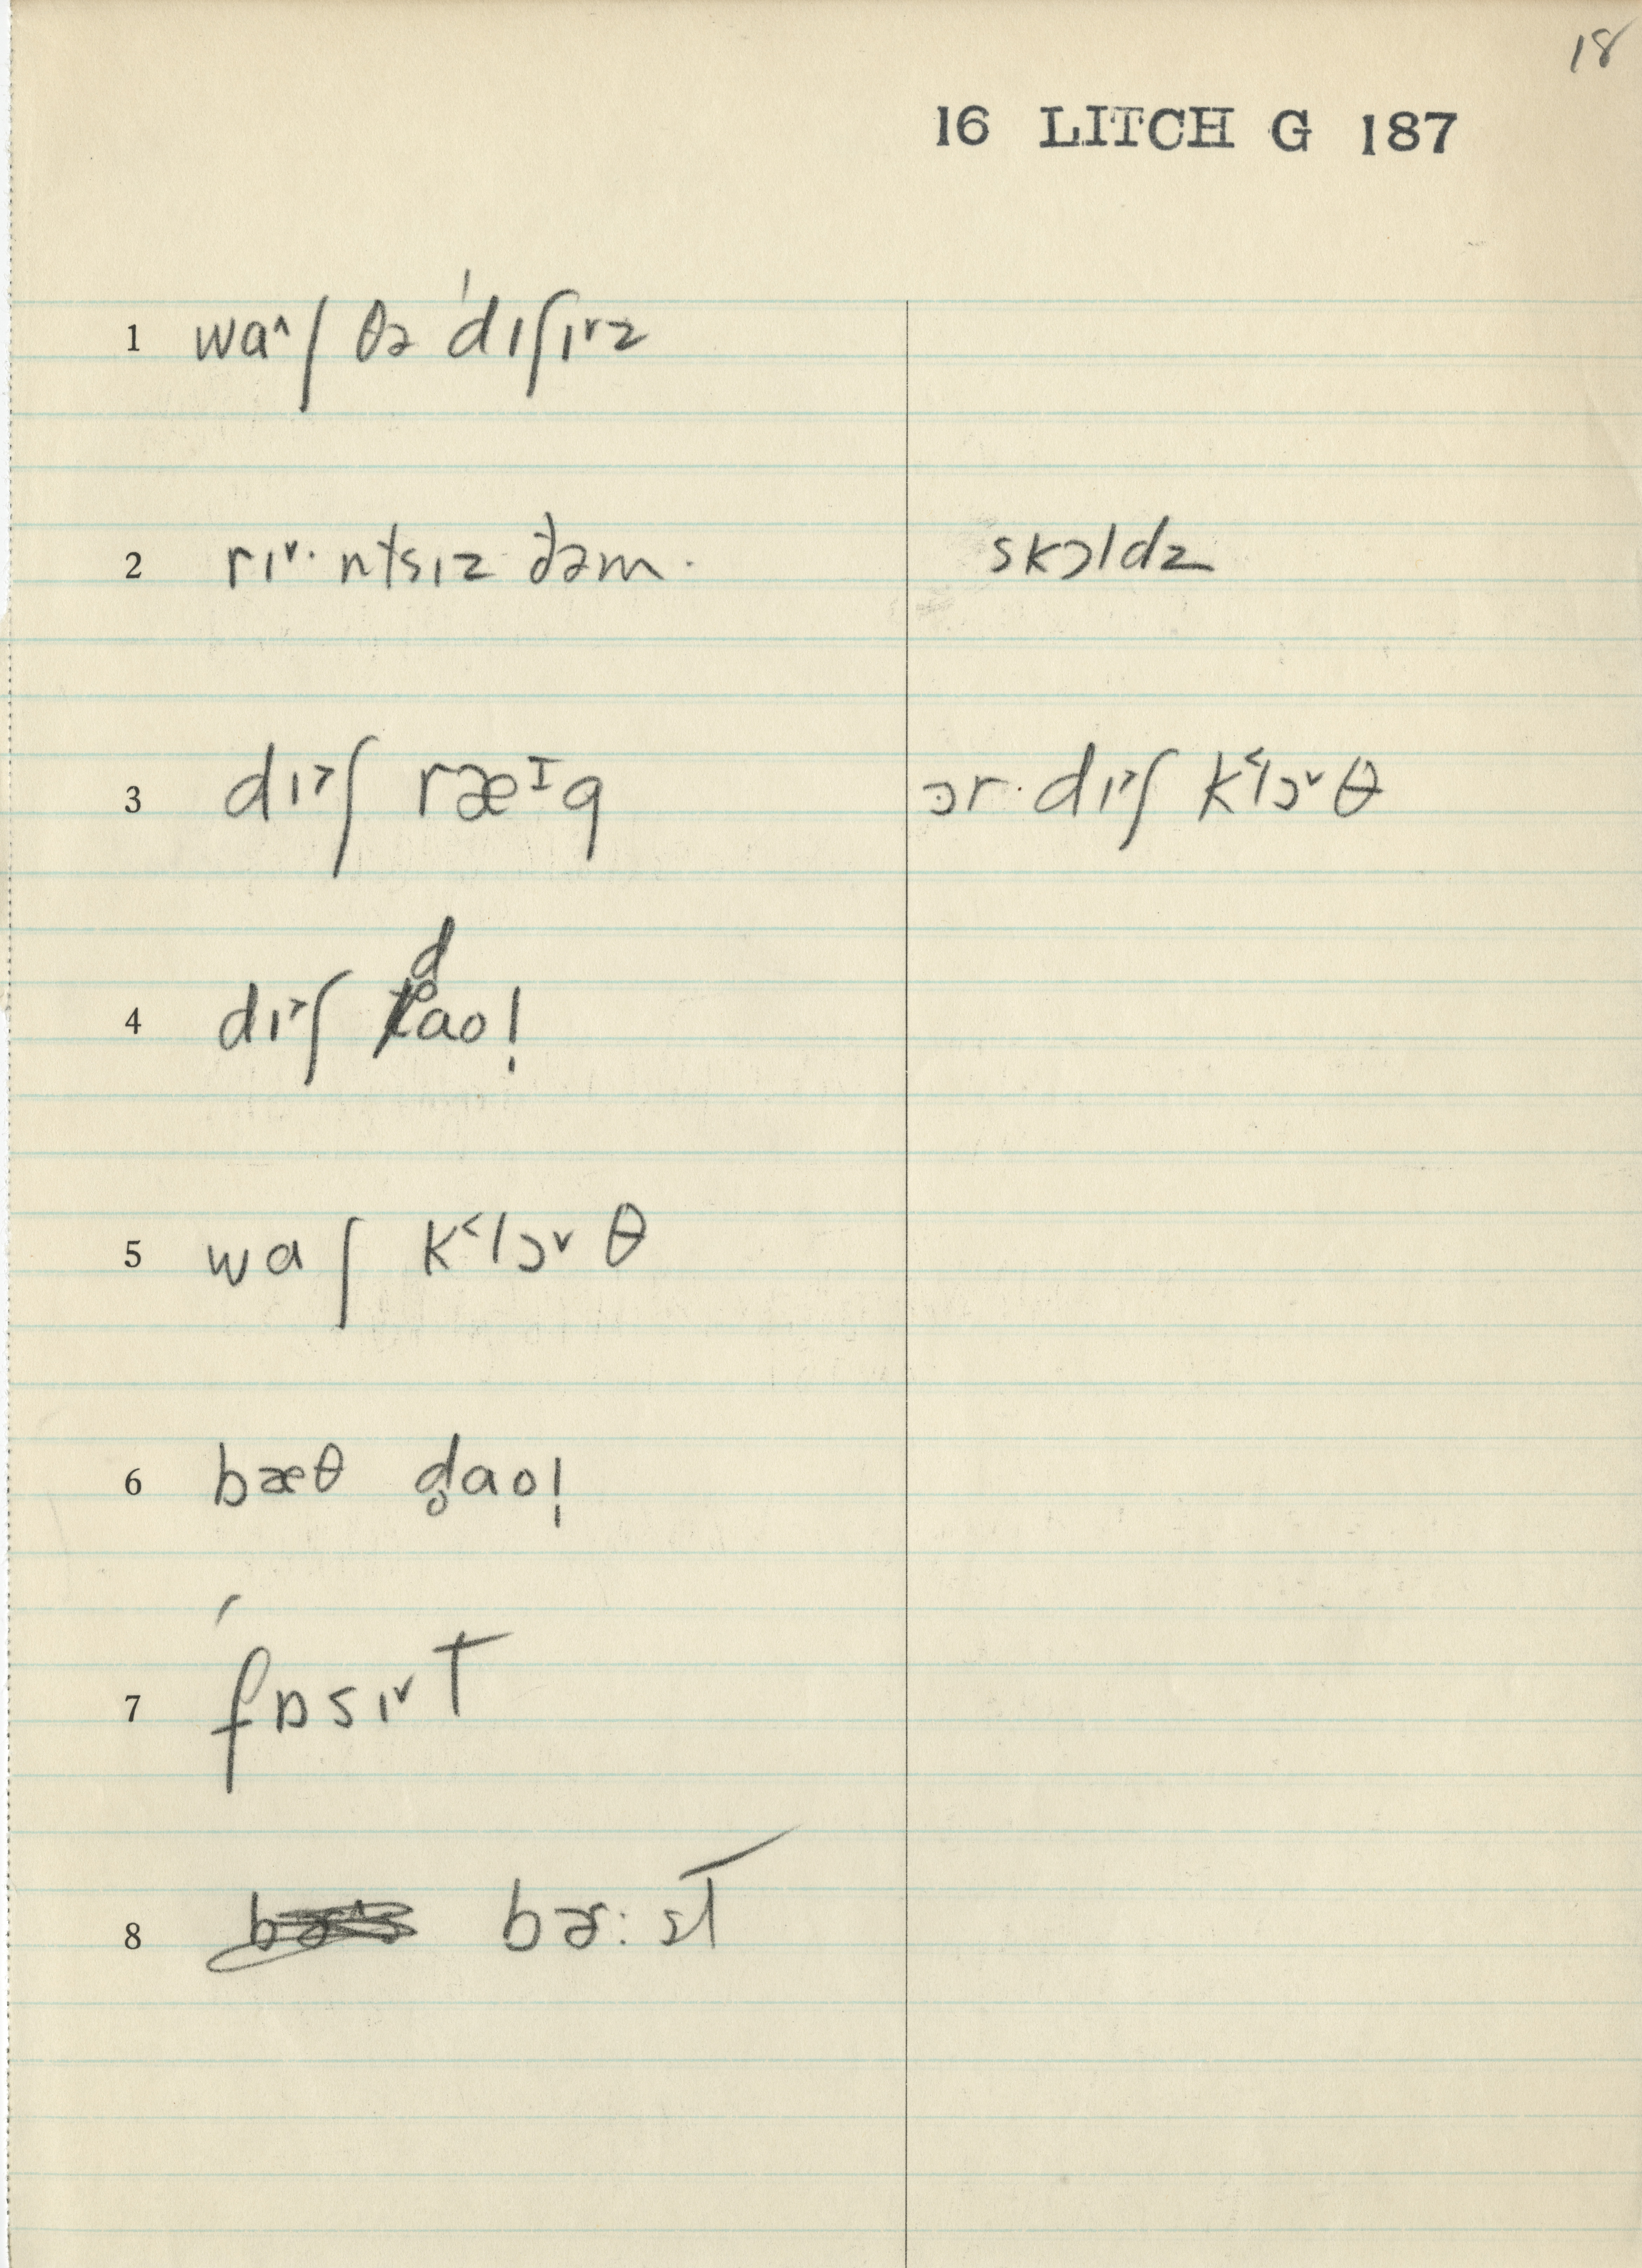 18
16 LITCH G 187
1 wa^ʃ θə ˈdɪʃɪ˅z
2 rɪ˅· ntsɪz ðəm. skɔldz
3 dɪ˃ʃ ræᴵg ɔr· dɪ˃ʃ k˂lɔ˅θ
4 dɪ˃ʃ d̥ao!
5 waʃ k˂lɔ˅θ
6 bæθ d̥ao!
7 ˈfɒsɪ˅t
8 bɚ:st